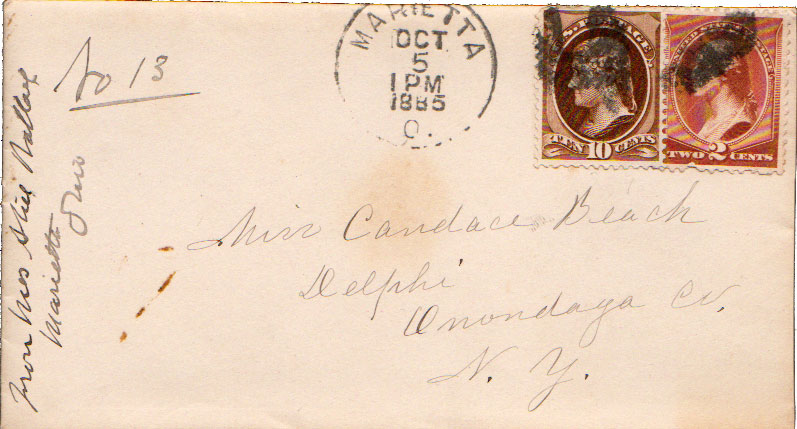 MARIETTA
OCT
5
1 PM
1885
O.
U.S. POSTAGE
TEN 10 CENTS
UNITED STATES POSTAGE
TWO 2 CENTS
No 13
From Mrs
Marietta Ohio
Miss Candace Beach
Delphi
Onondaga Co.
N. Y.